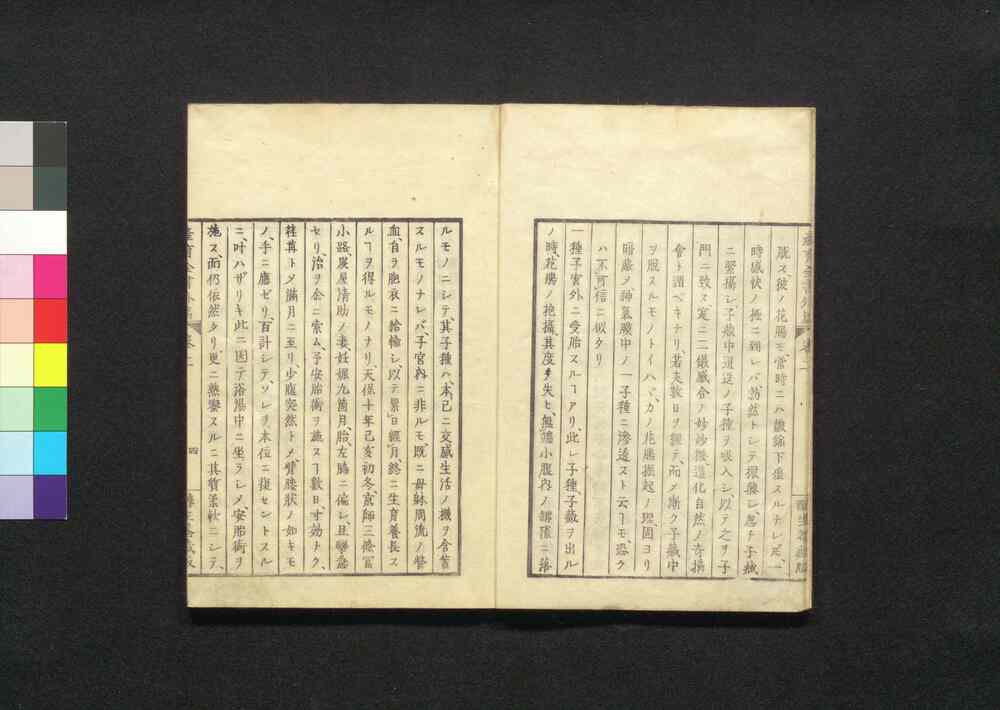 垂ス、彼ノ花陽モ、當時ニハ微綿下垂スルナレ𪜈、一
時感快ノ極ニ到レバ、勃然トシテ擡騰シ、忽チ子臓
ニ緊攝シ、子臓中逍遥ノ子種ヲ吸入シ、以テ之ヲ子
門ニ致ス、寔ニ二儀感合ノ妙機進化自然ノ奇搆
會ト謂ベキナリ、若夫數日ヲ經テ、而メ漸ク子臓中
ヲ脱スルモノトイハバ、カノ花陽振起ノ理固ヨリ
暗藤メ、神氣朦中ノ一子種ニ滲透スト云ヿモ、恐ク
ハ不可信ニ似タリ
一種子宮外ニ受胎スルヿアリ、此レ子種、子臓ヲ出ル
ノ時、花陽ノ抱攝、其度ヲ失ヒ、小腹内ノ罅隙ニ落
ルモノニシテ、其子種ハ、本、已ニ交感生活ノ機ヲ含蓄
スルモノナレバ、子宮内ニ非ルモ、既ニ母躰周流ノ營
血、自ラ胞衣ニ給輸シ、以テ累日經月、終ニ生育養長ス
ルヿヲ得ルモノナリ、天保十年己亥初冬、京師三條冨
小路、炭屋淸助ノ妻、妊娠九箇月、胎、左腸ニ偏シ、且攣急
セリ、治ヲ余ニ索ム、予安胎術ヲ施スヿ數日、寸効ナク、
荏苒トメ滿月ニ至リ、少腹突然トメ、臂膝狀ノ如キモ
ノ、手ニ應ゼリ、百計シテ、ソレヲ本位ニ復セントスル
ニ、叶ハザリキ、此ニ因テ浴湯中ニ坐ラシメ、安胎術ヲ
施ス、而仍依然タリ、更ニ熟察スルニ、其質柔軟ニシテ、
四